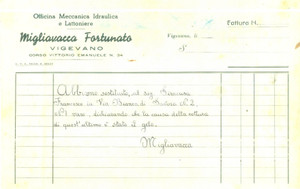 Officina Meccanica Idraulica
e Lattoniere
Migliavacca Fortunato
VIGEVANO
CORSO VITTORIO EMANUELE N. 24
Fattura N.
Vigevano, li
N°
Abbiamo sostituito, al sig.
Francesco in Via N° 2
N° 1 vaso, dichiarando che la causa della rottura
di quest'ultimo è stato il gelo.
Migliavacca